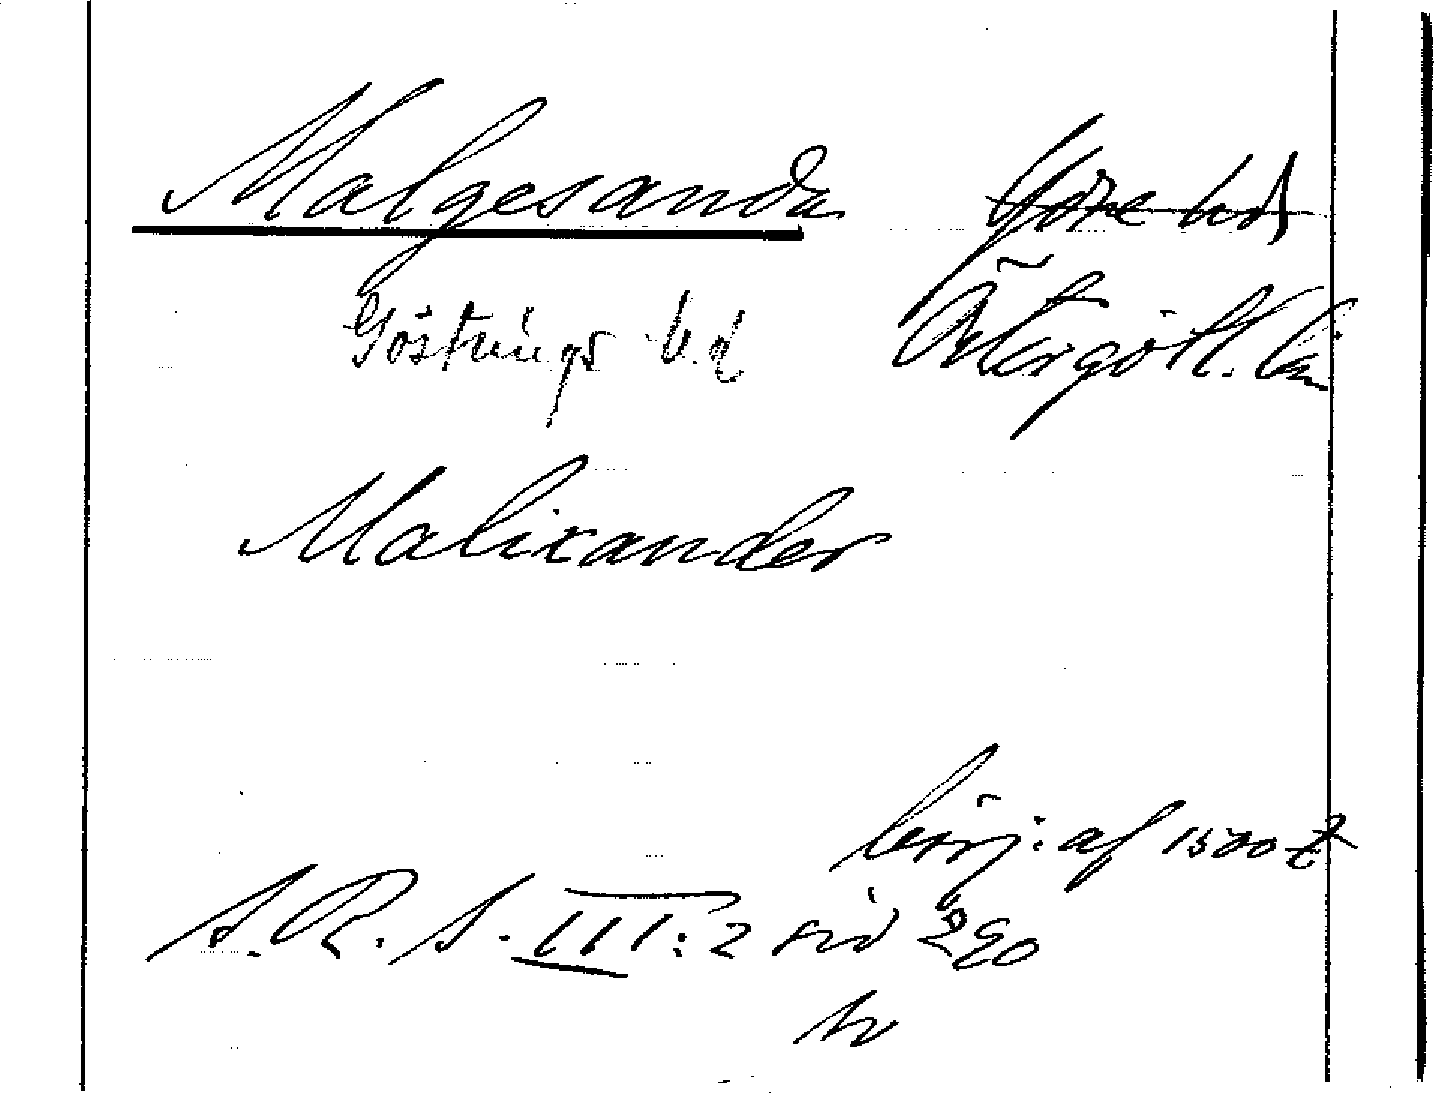 Malgesanda Ydre hd
Göstrings h.d Östergötl. län
Malixander
börj: af 1500 t
S. R. S. III: 2 sid 290